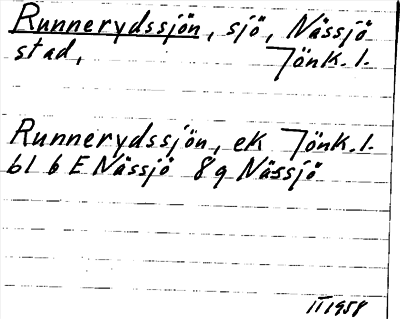 Runnerydssjön, sjö, Nässjö
stad, Jönk. l.
Runnerydssjön, ek Jönk. l.
bl 6 E Nässjö 8 g Nässjö
II 1958